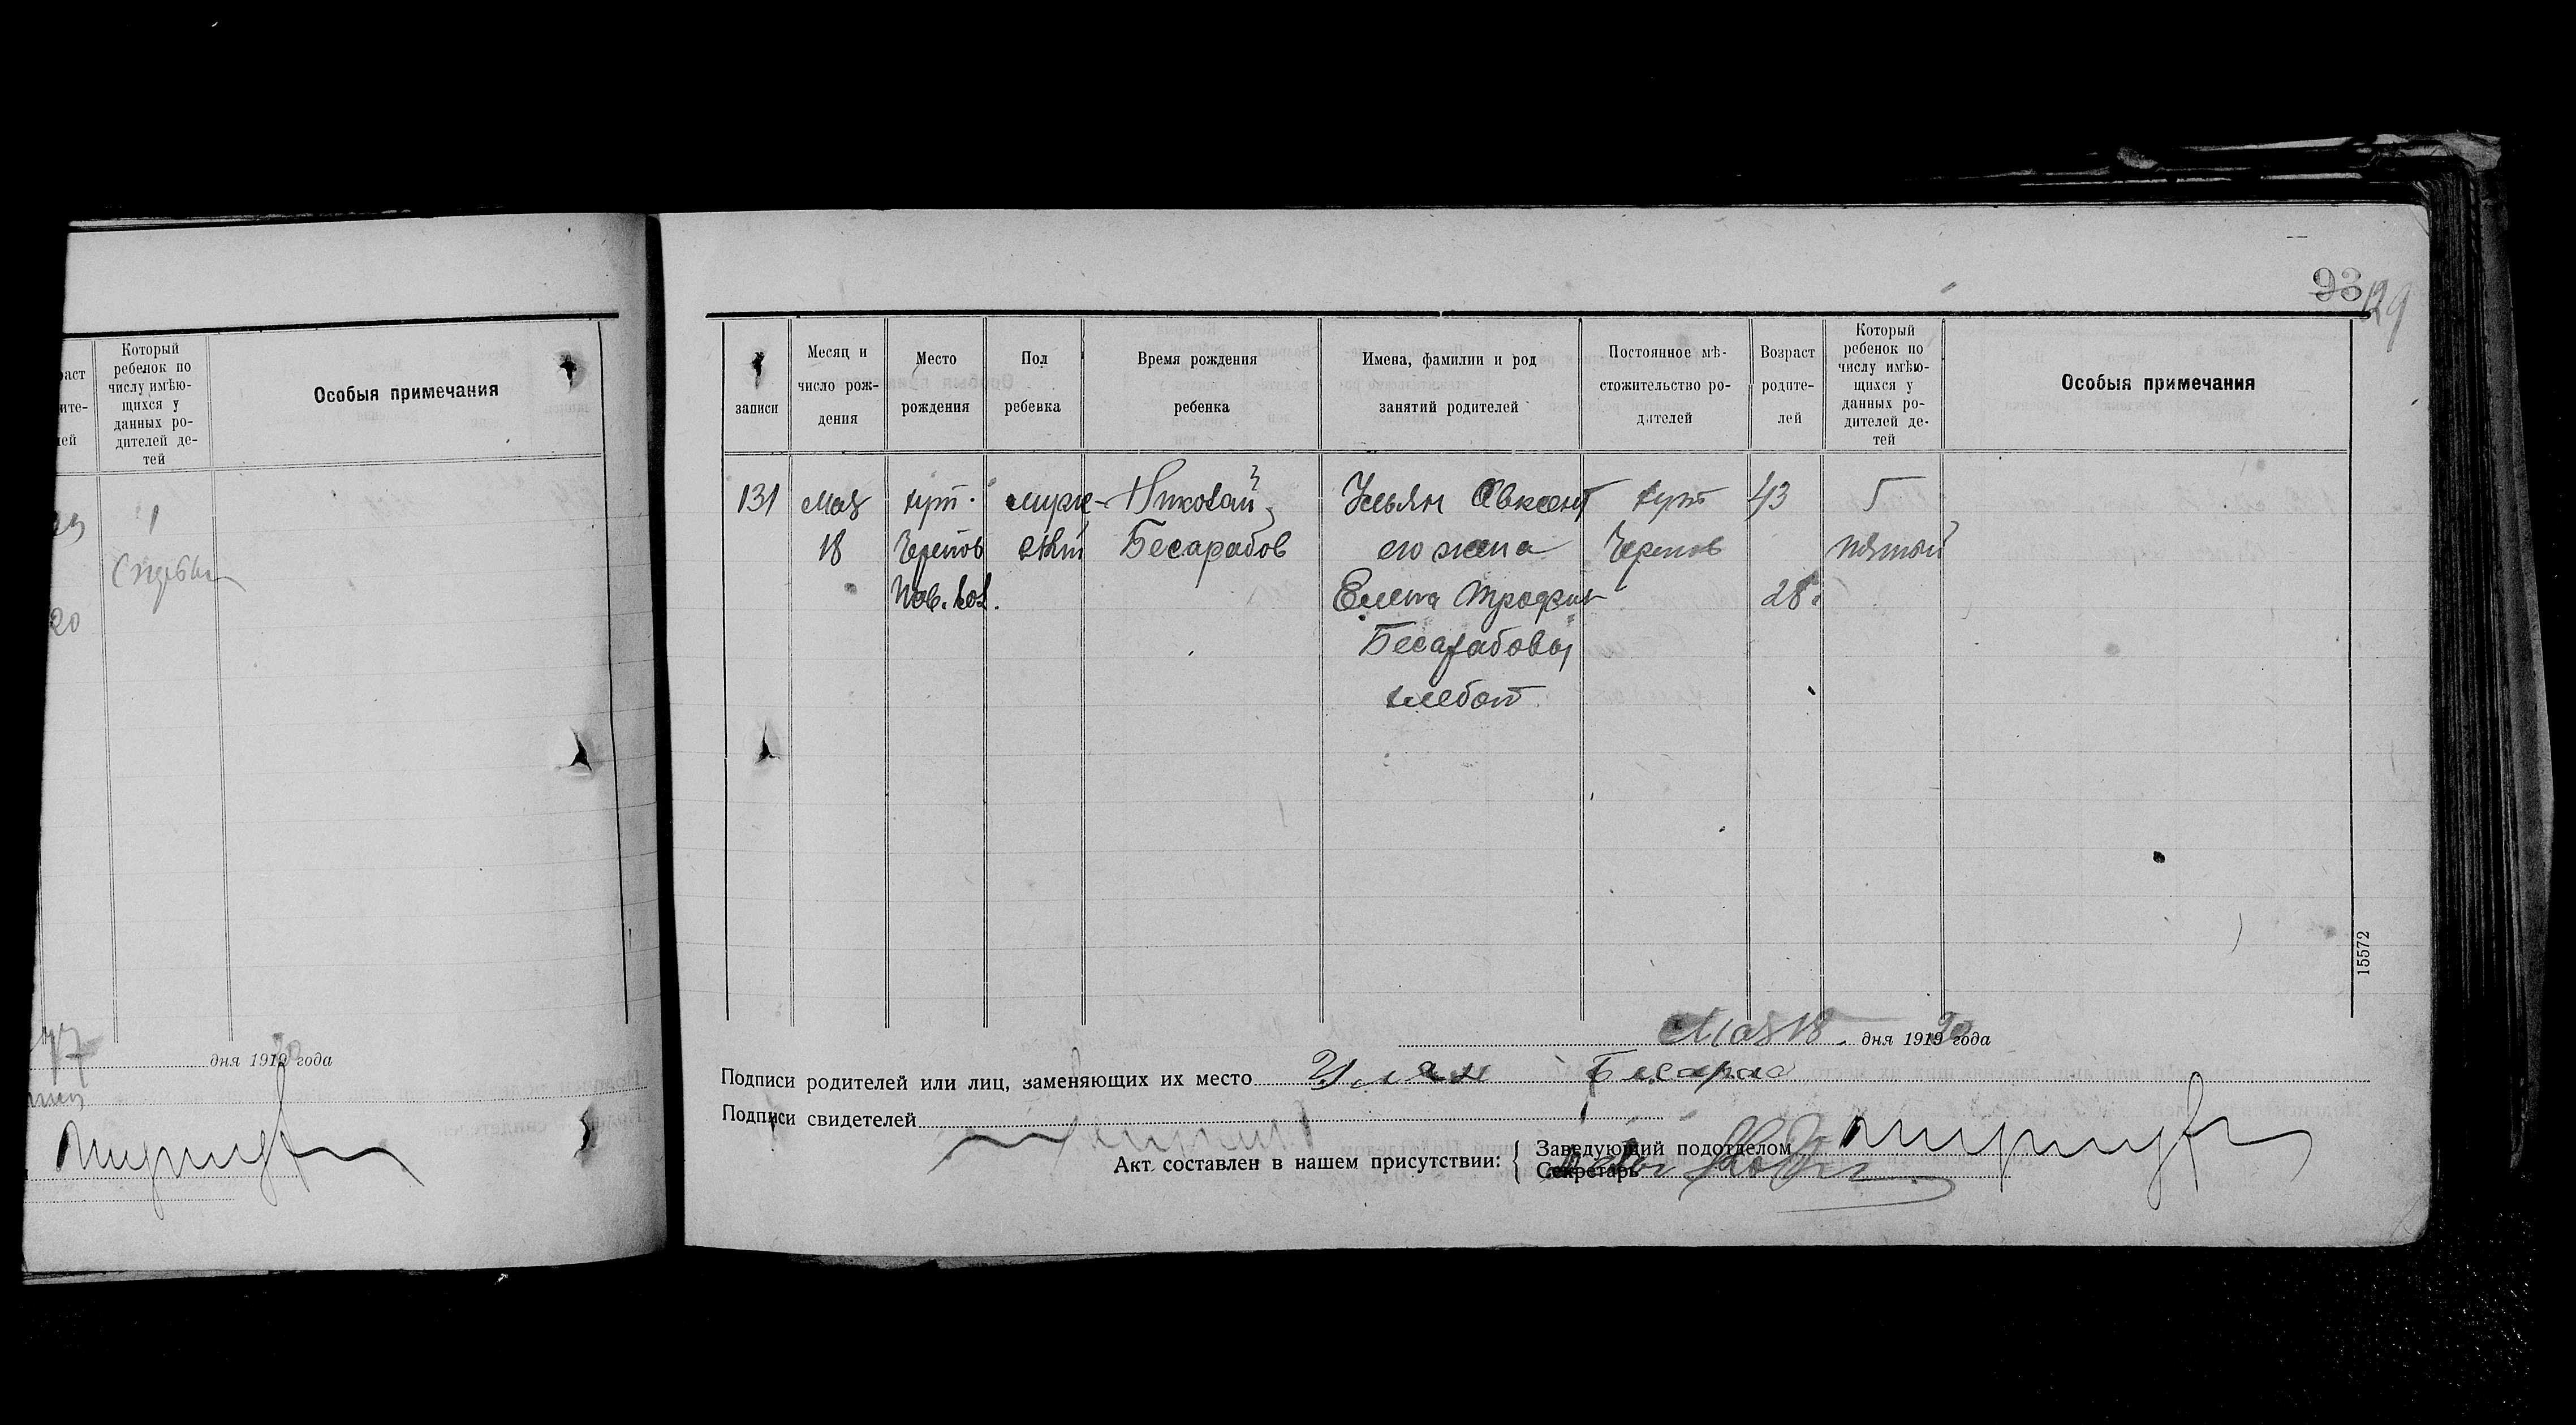 93 129
раст
ите-
лей
Который
ребенок по
числу имѣю-
щихся у
данных ро-
дителей де-
тей
Особыя примечания
1
20
дня 1919 20 года
записи
Месяц и
число рож-
дения
Место
рождения
Пол
ребенка
Время рождения
ребенка
Имена, фамилии и род
занятий родителей
Постоянное мѣ-
стожительство ро-
дителей
Возраст
родите-
лей
Который
ребенок по
числу имѣю-
щихся у
данных ро-
дителей де-
тей
Особыя примечания
131
Мая
18
хут.
Черепов
Нов. вол.
муже-
ский
Николай
Бесарабов
Ульян Авксент
его жена
Елена Трофим
Бесарабовы
хлебоп
хут
Черепов
43
28.
5
пятый
15572
Мая 18 дня 1919 20 года
Подписи родителей или лиц, заменяющих их место Улян Бесараб
Подписи свидетелей
Акт составлен в нашем присутствии:
Заведующий подотделом
Секретарь